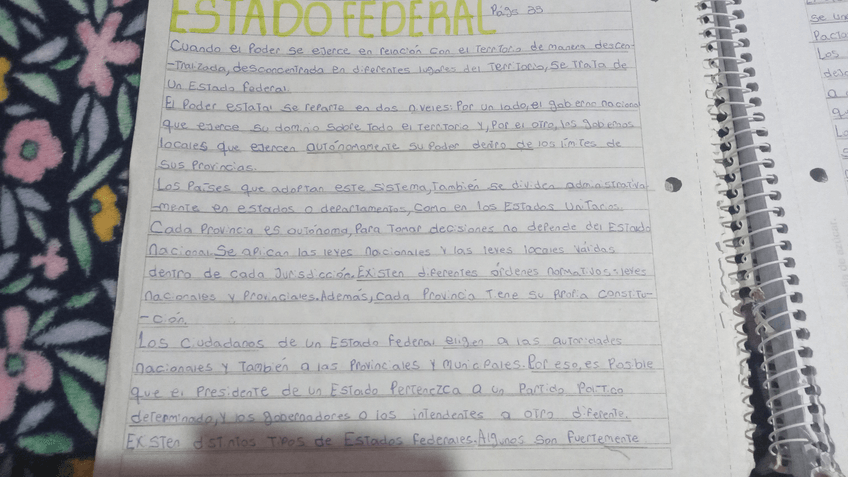 ESTADO FEDERAL Págs 39
Cuando el Poder se ejerce en relación con el territorio de manera descen-
-tralizada, desconcentrada en diferentes lugares del territorio, se trata de
un Estado Federal.
El Poder estatal se reparte en dos niveles: Por un lado, el gobierno nacional
que ejerce su dominio sobre todo el territorio y, Por el otro, los gobiernos
locales que ejercen autónomamente su Poder dentro de los límites de
sus Provincias.
Los Países que adoptan este sistema, también se dividen administrativa-
-mente en estados o departamentos, como en los Estados Unitarios.
Cada Provincia es autónoma, Para tomar decisiones no depende del Estado
nacional. Se aplican las leyes nacionales y las leyes locales válidas
dentro de cada Jurisdicción. Existen diferentes órdenes normativos: leyes
nacionales y Provinciales. Además, cada Provincia tiene su propia constitu-
-ción.
Los ciudadanos de un Estado Federal eligen a las autoridades
nacionales y también a las Provinciales y municipales. Por eso, es Posible
que el Presidente de un Estado Pertenezca a un Partido Político
determinado, y los gobernadores o los intendentes a otro diferente.
Existen distintos tipos de Estados Federales. Algunos son fuertemente
se un
Pacto
Los